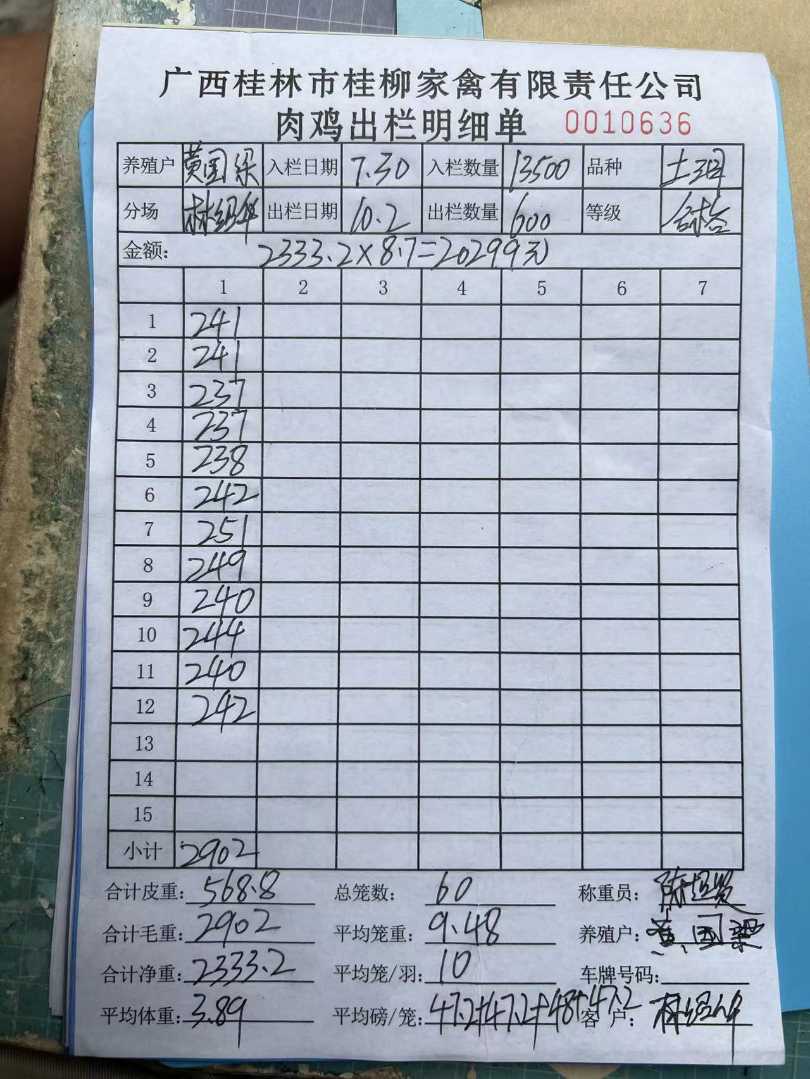 广西桂林市桂柳家禽有限责任公司
肉鸡出栏明细单 0010636
养殖户 黄国梁 入栏日期 7.30 入栏数量 13500 品种 土
分场 林绍华 出栏日期 10.2 出栏数量 600 等级 合格
金额: 2333.2×8.7=20299元
1 2 3 4 5 6 7
1 241
2 241
3 237
4 237
5 238
6 242
7 251
8 249
9 240
10 244
11 240
12 242
13
14
15
小计 2902
合计皮重: 568.8 总笼数: 60 称重员:
合计毛重: 2902 平均笼重: 9.48 养殖户: 黄国梁
合计净重: 2333.2 平均笼/羽: 10 车牌号码:
平均体重: 3.89 平均磅/笼: 47.2+47.2+48+47.2 客户: 林绍华